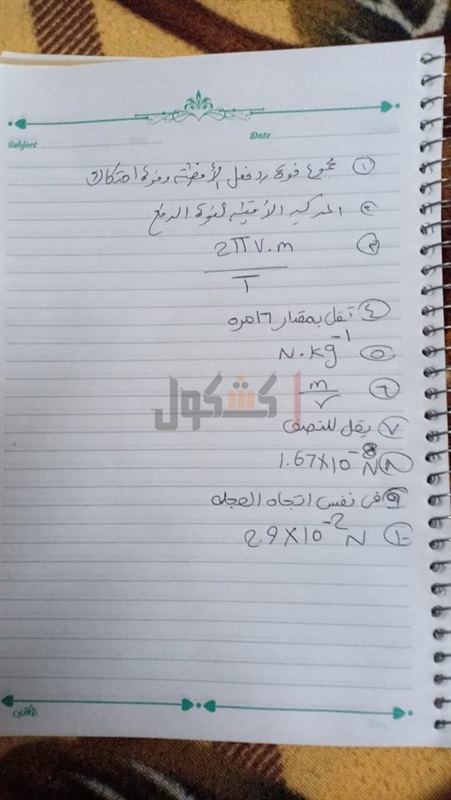 Subject
Date
① مجموع قوة رد فعل الأفقية وقوة احتكاك
② المركبة الأفقية لقوة الرفع
③ 2πv.m
T
④ تقل بمقدار ١٦ مره
⑤ N.kg⁻¹
⑥ m
r
⑦ يقل للنصف
⑧ 1.67×10⁻⁸ N
⑨ في نفس اتجاه العجله
⑩ 2.9×10⁻² N
كشكول